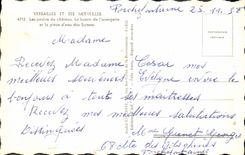 VERSAILLES ET SES MERVEILLES
4712 Les jardins du château. Le bassin de l'orangerie
et la pièce d'eau des Suisses.
23.11.52
Madame
Recevez Madame Cesar mes
meilleurs souvenirs Evelyne envoie le
bonjours à toute ses maitresses
Recevez mes meilleurs salutations
Distinguées
Mme Georges
68 cite des